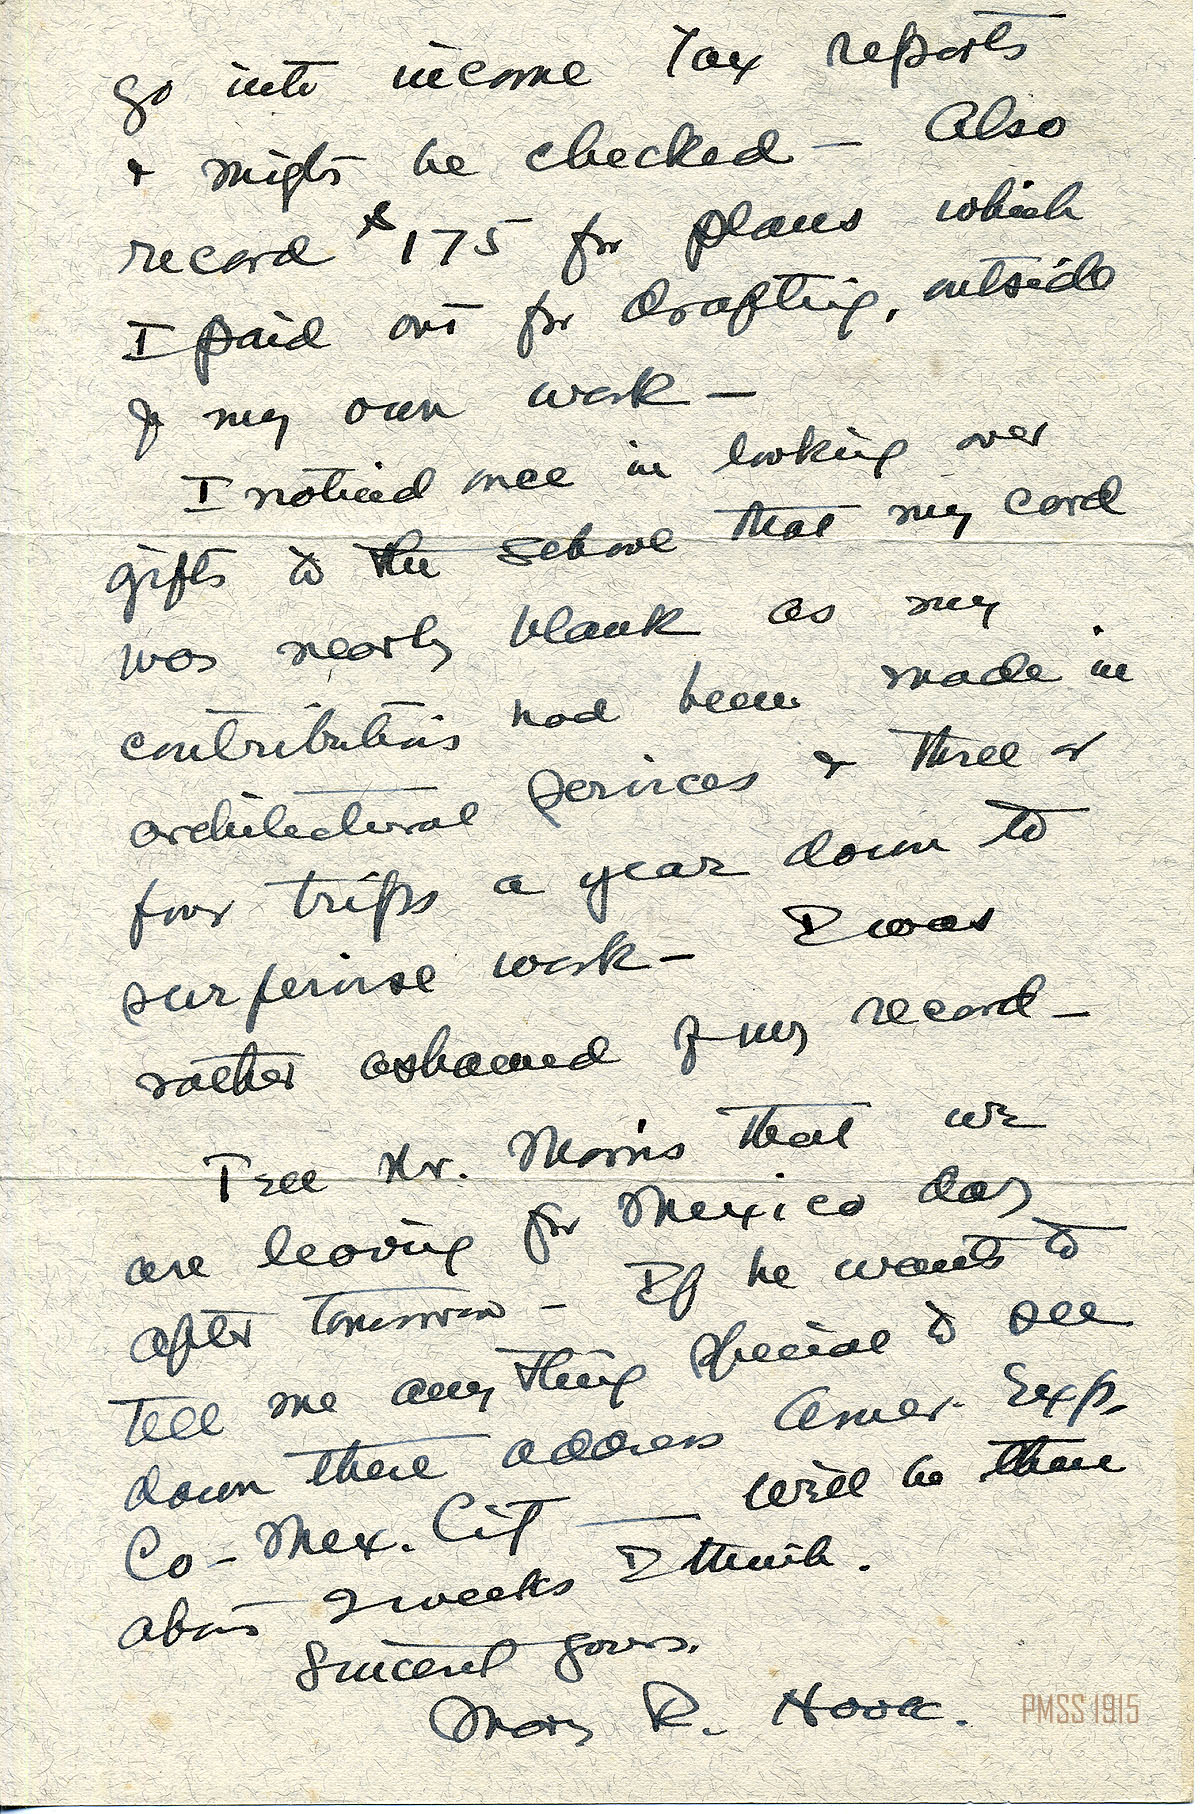 go into income Tax reports
& might be checked — Also
record $175 for plans which
I paid out for drafting, outside
of my own work —
I noticed once in looking over
gifts to the School that my card
was nearly blank as my
contributions had been made in
architectural services & three or
four trips a year down to
supervise work — I was
rather ashamed of my record —
Tell Mr. Morris that we
are leaving for Mexico day
after tomorrow — If he wants to
tell me any thing special to see
down there address Amer. Exp.
Co — Mex. City — will be there
about 2 weeks I think.
Sincerely yours.
Mary R. Hook.
PMSS 1915